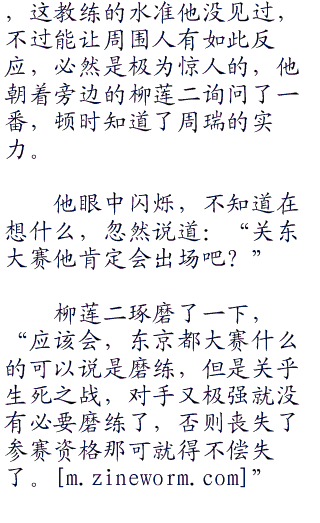 ，这教练的水准他没见过，
不过能让周围人有如此反
应，必然是极为惊人的，他
朝着旁边的柳莲二询问了一
番，顿时知道了周瑞的实
力。
他眼中闪烁，不知道在
想什么，忽然说道：“关东
大赛他肯定会出场吧？”
柳莲二琢磨了一下，
“应该会，东京都大赛什么
的可以说是磨练，但是关乎
生死之战，对手又极强就没
有必要磨练了，否则丧失了
参赛资格那可就得不偿失
了。[m.zineworm.com]”